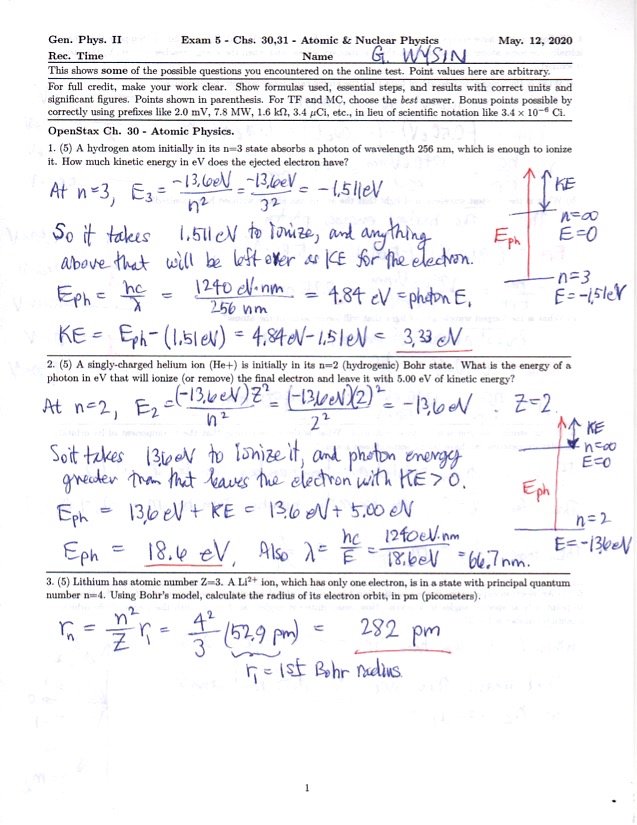 Gen. Phys. II Exam 5 - Chs. 30,31 - Atomic & Nuclear Physics May. 12, 2020
Rec. Time Name G. WYSIN
This shows some of the possible questions you encountered on the online test. Point values here are arbitrary.
For full credit, make your work clear. Show formulas used, essential steps, and results with correct units and
significant figures. Points shown in parenthesis. For TF and MC, choose the best answer. Bonus points possible by
correctly using prefixes like 2.0 mV, 7.8 MW, 1.6 kΩ, 3.4 μCi, etc., in lieu of scientific notation like 3.4 × 10⁻⁶ Ci.
OpenStax Ch. 30 - Atomic Physics.
1. (5) A hydrogen atom initially in its n=3 state absorbs a photon of wavelength 256 nm, which is enough to ionize
it. How much kinetic energy in eV does the ejected electron have?
At n=3, E₃ = -13.6eV/n² = -13.6eV/3² = -1.511eV
So it takes 1.511 eV to ionize, and anything
above that will be left over as KE for the electron.
Eph = hc/λ = 1240 eV·nm/256 nm = 4.84 eV = photon E.
KE = Eph - (1.51eV) = 4.84eV - 1.51eV = 3.33 eV
KE
n=∞
E=0
Eph
n=3
E=-1.51eV
2. (5) A singly-charged helium ion (He+) is initially in its n=2 (hydrogenic) Bohr state. What is the energy of a
photon in eV that will ionize (or remove) the final electron and leave it with 5.00 eV of kinetic energy?
At n=2, E₂ = (-13.6eV)Z²/n² = (-13.6eV)(2)²/2² = -13.6eV. Z=2.
So it takes 13.6eV to ionize it, and photon energy
greater than that leaves the electron with KE>0.
Eph = 13.6 eV + KE = 13.6 eV + 5.00 eV
Eph = 18.6 eV. Also λ = hc/E = 1240eV·nm/18.6eV = 66.7nm.
KE
n=∞
E=0
Eph
n=2
E=-13.6eV
3. (5) Lithium has atomic number Z=3. A Li²⁺ ion, which has only one electron, is in a state with principal quantum
number n=4. Using Bohr's model, calculate the radius of its electron orbit, in pm (picometers).
rₙ = n²/Z r₁ = 4²/3 (52.9 pm) = 282 pm
r₁ = 1st Bohr radius.
1